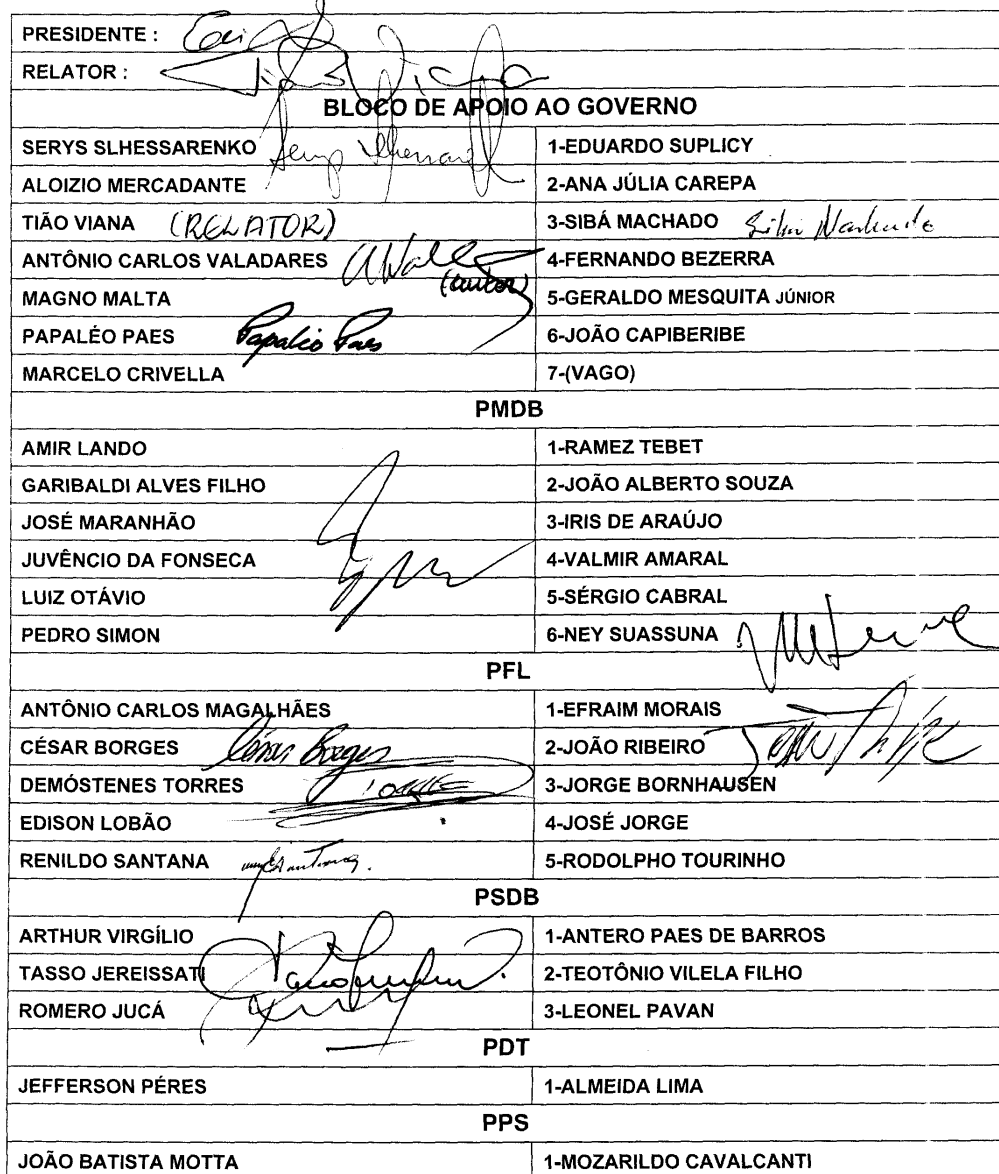 PRESIDENTE :
RELATOR :
BLOCO DE APOIO AO GOVERNO
SERYS SLHESSARENKO 1-EDUARDO SUPLICY
ALOIZIO MERCADANTE 2-ANA JÚLIA CAREPA
TIÃO VIANA (RELATOR) 3-SIBÁ MACHADO Sibá Machado
ANTÔNIO CARLOS VALADARES 4-FERNANDO BEZERRA
(autor)
MAGNO MALTA 5-GERALDO MESQUITA JÚNIOR
PAPALÉO PAES Papaléo Paes 6-JOÃO CAPIBERIBE
MARCELO CRIVELLA 7-(VAGO)
PMDB
AMIR LANDO 1-RAMEZ TEBET
GARIBALDI ALVES FILHO 2-JOÃO ALBERTO SOUZA
JOSÉ MARANHÃO 3-IRIS DE ARAÚJO
JUVÊNCIO DA FONSECA 4-VALMIR AMARAL
LUIZ OTÁVIO 5-SÉRGIO CABRAL
PEDRO SIMON 6-NEY SUASSUNA
PFL
ANTÔNIO CARLOS MAGALHÃES 1-EFRAIM MORAIS
CÉSAR BORGES César Borges 2-JOÃO RIBEIRO
DEMÓSTENES TORRES 3-JORGE BORNHAUSEN
EDISON LOBÃO 4-JOSÉ JORGE
RENILDO SANTANA 5-RODOLPHO TOURINHO
PSDB
ARTHUR VIRGÍLIO 1-ANTERO PAES DE BARROS
TASSO JEREISSATI 2-TEOTÔNIO VILELA FILHO
ROMERO JUCÁ 3-LEONEL PAVAN
PDT
JEFFERSON PÉRES 1-ALMEIDA LIMA
PPS
JOÃO BATISTA MOTTA 1-MOZARILDO CAVALCANTI